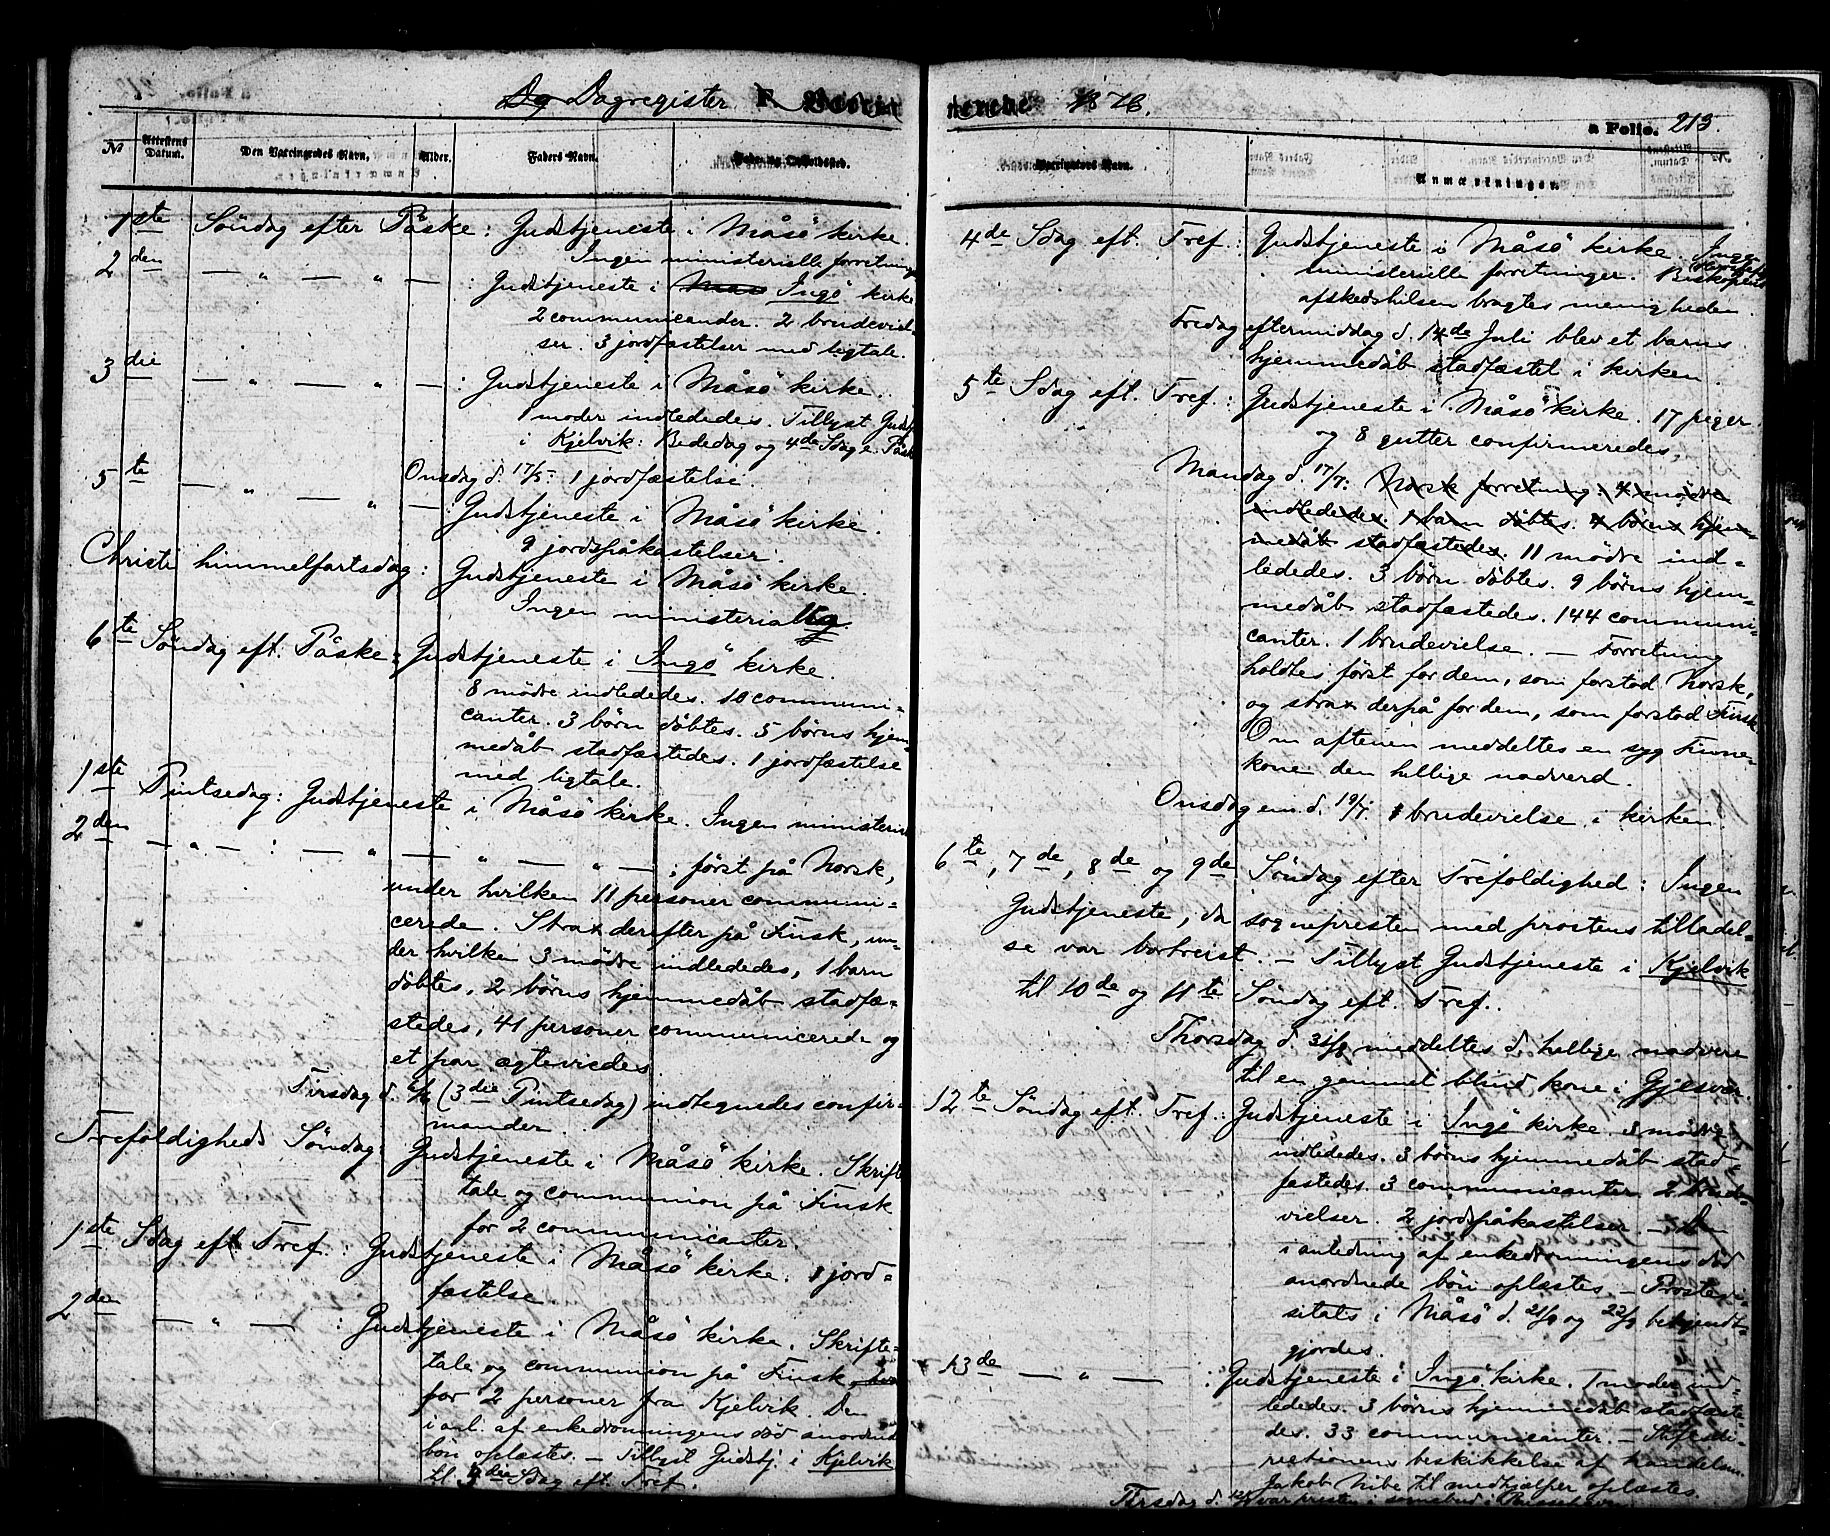 Dg Dagregister F. 1876.
a Folio. 213.
No Attestens Datum. Den Vaccineredes Navn. Alder. Faders Navn.
Vaccinators Navn. Anmærkninger.
1ste Söndag efter Påske: Gudstjeneste i Måsö kirke.
Ingen ministerielle forretninger
2den — " — " — : Gudstjeneste i Måsö Ingö kirke
2 communicander. 2 brudeviel-
ser. 3 jordfæstelser med ligtale.
3die — " — " — : Gudstjeneste i Måsö kirke.
1 moder indlededes. Tillyst Gudstj
i Kjelvik: Bededag og 4de Sdag e. Påske
Onsdag d. 17/5: 1 jordfæstelse.
5te — " — " — : Gudstjeneste i Måsö kirke.
9 jordspåkastelser.
Christi himmelfartsdag: Gudstjeneste i Måsö kirke.
Ingen ministeriallia.
6te Söndag eft. Påske: Gudstjeneste i Ingö kirke.
8 mödre indlededes. 10 communi-
canter. 3 börn döbtes. 5 börns hjem-
medåb stadfæstedes. 1 jordfæstelse
med ligtale.
1ste Pintsedag: Gudstjeneste i Måsö kirke. Ingen ministeri
2den — " — : — " — " — " — ; först på Norsk,
under hvilken 11 personer communi-
cerede. Strax derefter på Finsk, un-
der hvilken 3 mödre indlededes, 1 barn
döbtes, 2 börns hjemmedåb stadfæ-
stedes, 41 personer communicerede og
et par ægteviedes.
Tirsdag d. 6/6 (3die Pintsedag) indtegnedes confir-
mander.
Trefoldigheds Söndag: Gudstjeneste i Måsö kirke. Skrifte-
tale og communion på Finsk
for 2 communicanter.
1ste Sdag eft Tref.: Gudstjeneste i Måsö kirke. 1 jord-
fæstelse.
2den — " — : Gudstjeneste i Måsö kirke. Skrifte-
tale og communion på Finsk
for 2 personer fra Kjelvik. Den
i anl. af enkedronningens död anordnede
bön oplæstes. — Tillyst Gudstj. i Kjelvik
til 3die Sdag eft. Tref.
4de Sdag eft. Tref.: Gudstjeneste i Måsö kirke. Ingen
ministerielle forretninger. Biskopens
afskedshilsen bragtes menigheden.
Fredag eftermiddag d. 14de Juli blev et barns
hjemmedåb stadfæstet i kirken.
5te Sdag eft. Tref.: Gudstjeneste i Måsö kirke. 17 piger
og 8 gutter confirmeredes.
Mandag d. 17/7: Norsk forretning: 4 mödre
indlededes. 1 barn döbtes. 4 börns hjem-
medåb stadfæstedes. 11 mödre ind-
lededes. 3 börn döbtes. 9 börns hjem-
medåb stadfæstedes. 144 communi-
canter. 1 brudevielse. — Forretning
holdtes först for dem, som forstod Norsk,
og strax derpå for dem, som forstod Finsk
Om aftenen meddeltes en syg Finne-
kone den hellige nadverd.
Onsdag em. d. 19/7: 1 brudevielse i kirken.
6te, 7de, 8de og 9de Söndag efter Trefoldighed: Ingen
Gudstjeneste, da sognepresten med prostens tilladel-
se var bortreist. — Tillyst Gudstjeneste i Kjelvik
til 10de og 11te Söndag eft. Tref.
Thorsdag d. 31/8 meddeltes d. hellige nadvere
til en gammel blind kone i Gjesvær.
12te Söndag eft. Tref.: Gudstjeneste i Ingö kirke. 3 mödre
indlededes. 3 börns hjemmedåb stad-
fæstedes. 3 communicanter. 2 brude-
vielser. 2 jordspåkastelser. — Den
i anledning af enkedronningens död
anordnede bön oplæstes. — Prostevi-
sitats i Måsö d. 21/9 og 22/9 bekjendt-
gjordes.
13de — " — : Gudstjeneste i Ingö kirke. 1 moder ind-
lededes. 3 börns hjemmedåb stadfæste-
des. 33 communicanter. — Stiftsdi-
rectionens beskikkelse af handelsm.
Jakob Nibe til medhjælper oplæstes.
Tirsdag d. 12/9 var presten i sognebud i